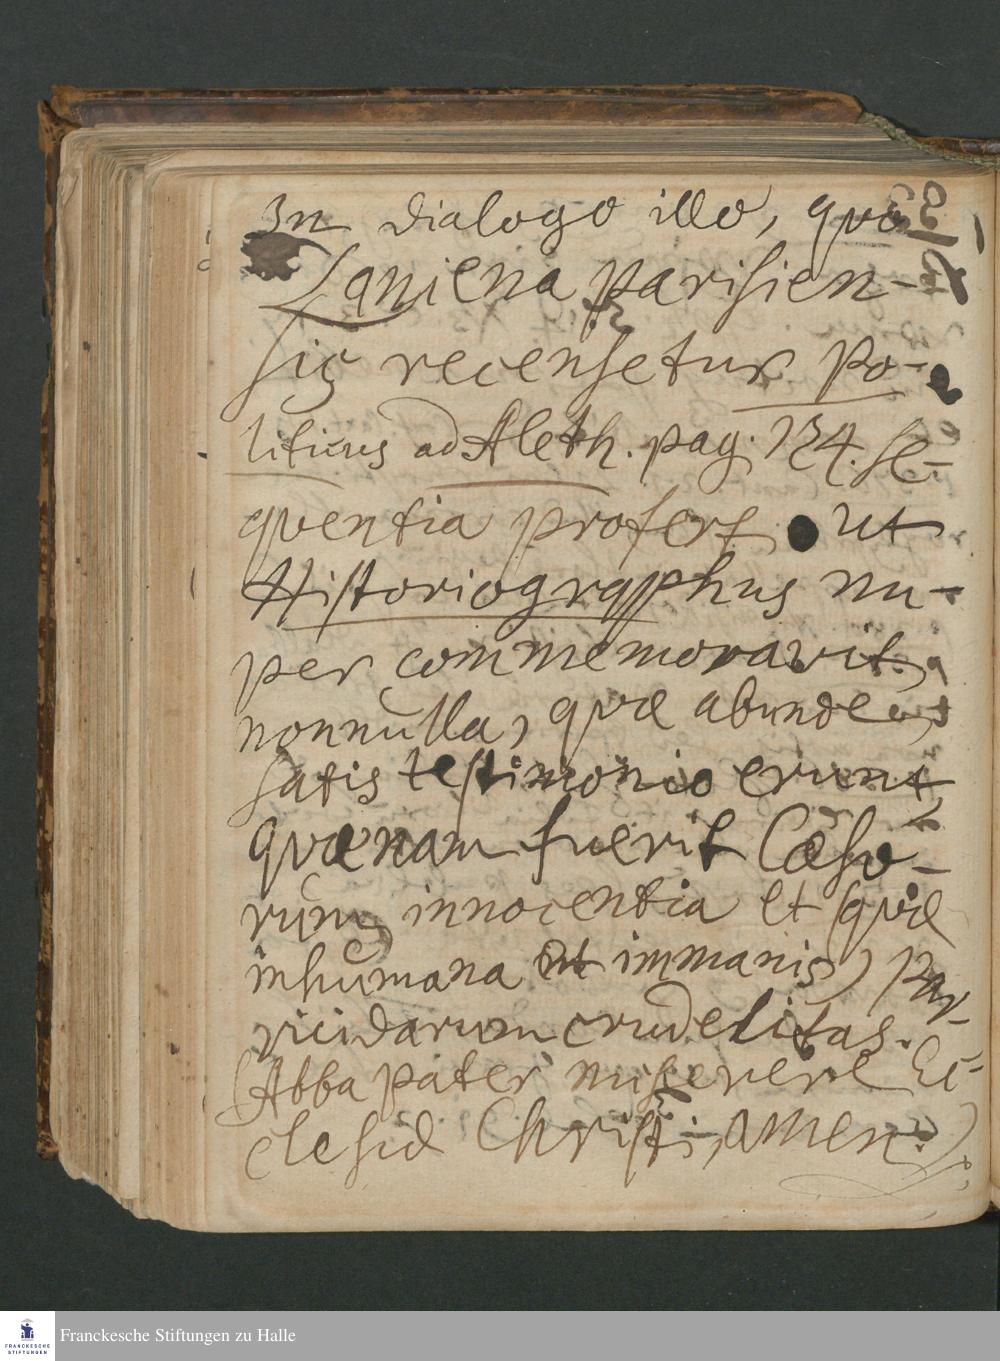 In dialogo illo, quo
Laniena parisien-
sis recensetur Po-
liticus ad Aleth. pag. 134. se-
quentia profert, ut
Historiographus nu-
per commemoravit
nonnulla, quæ abunde
satis testimonio erunt
quænam fuerit Cæso-
rum innocentia et quæ
inhumana et immanis Par-
ricidarum crudelitas.
(Abba pater miserere Ec-
clesiæ Christi, Amen.)
Franckesche Stiftungen zu Halle
FRANCKESCHE
STIFTUNGEN